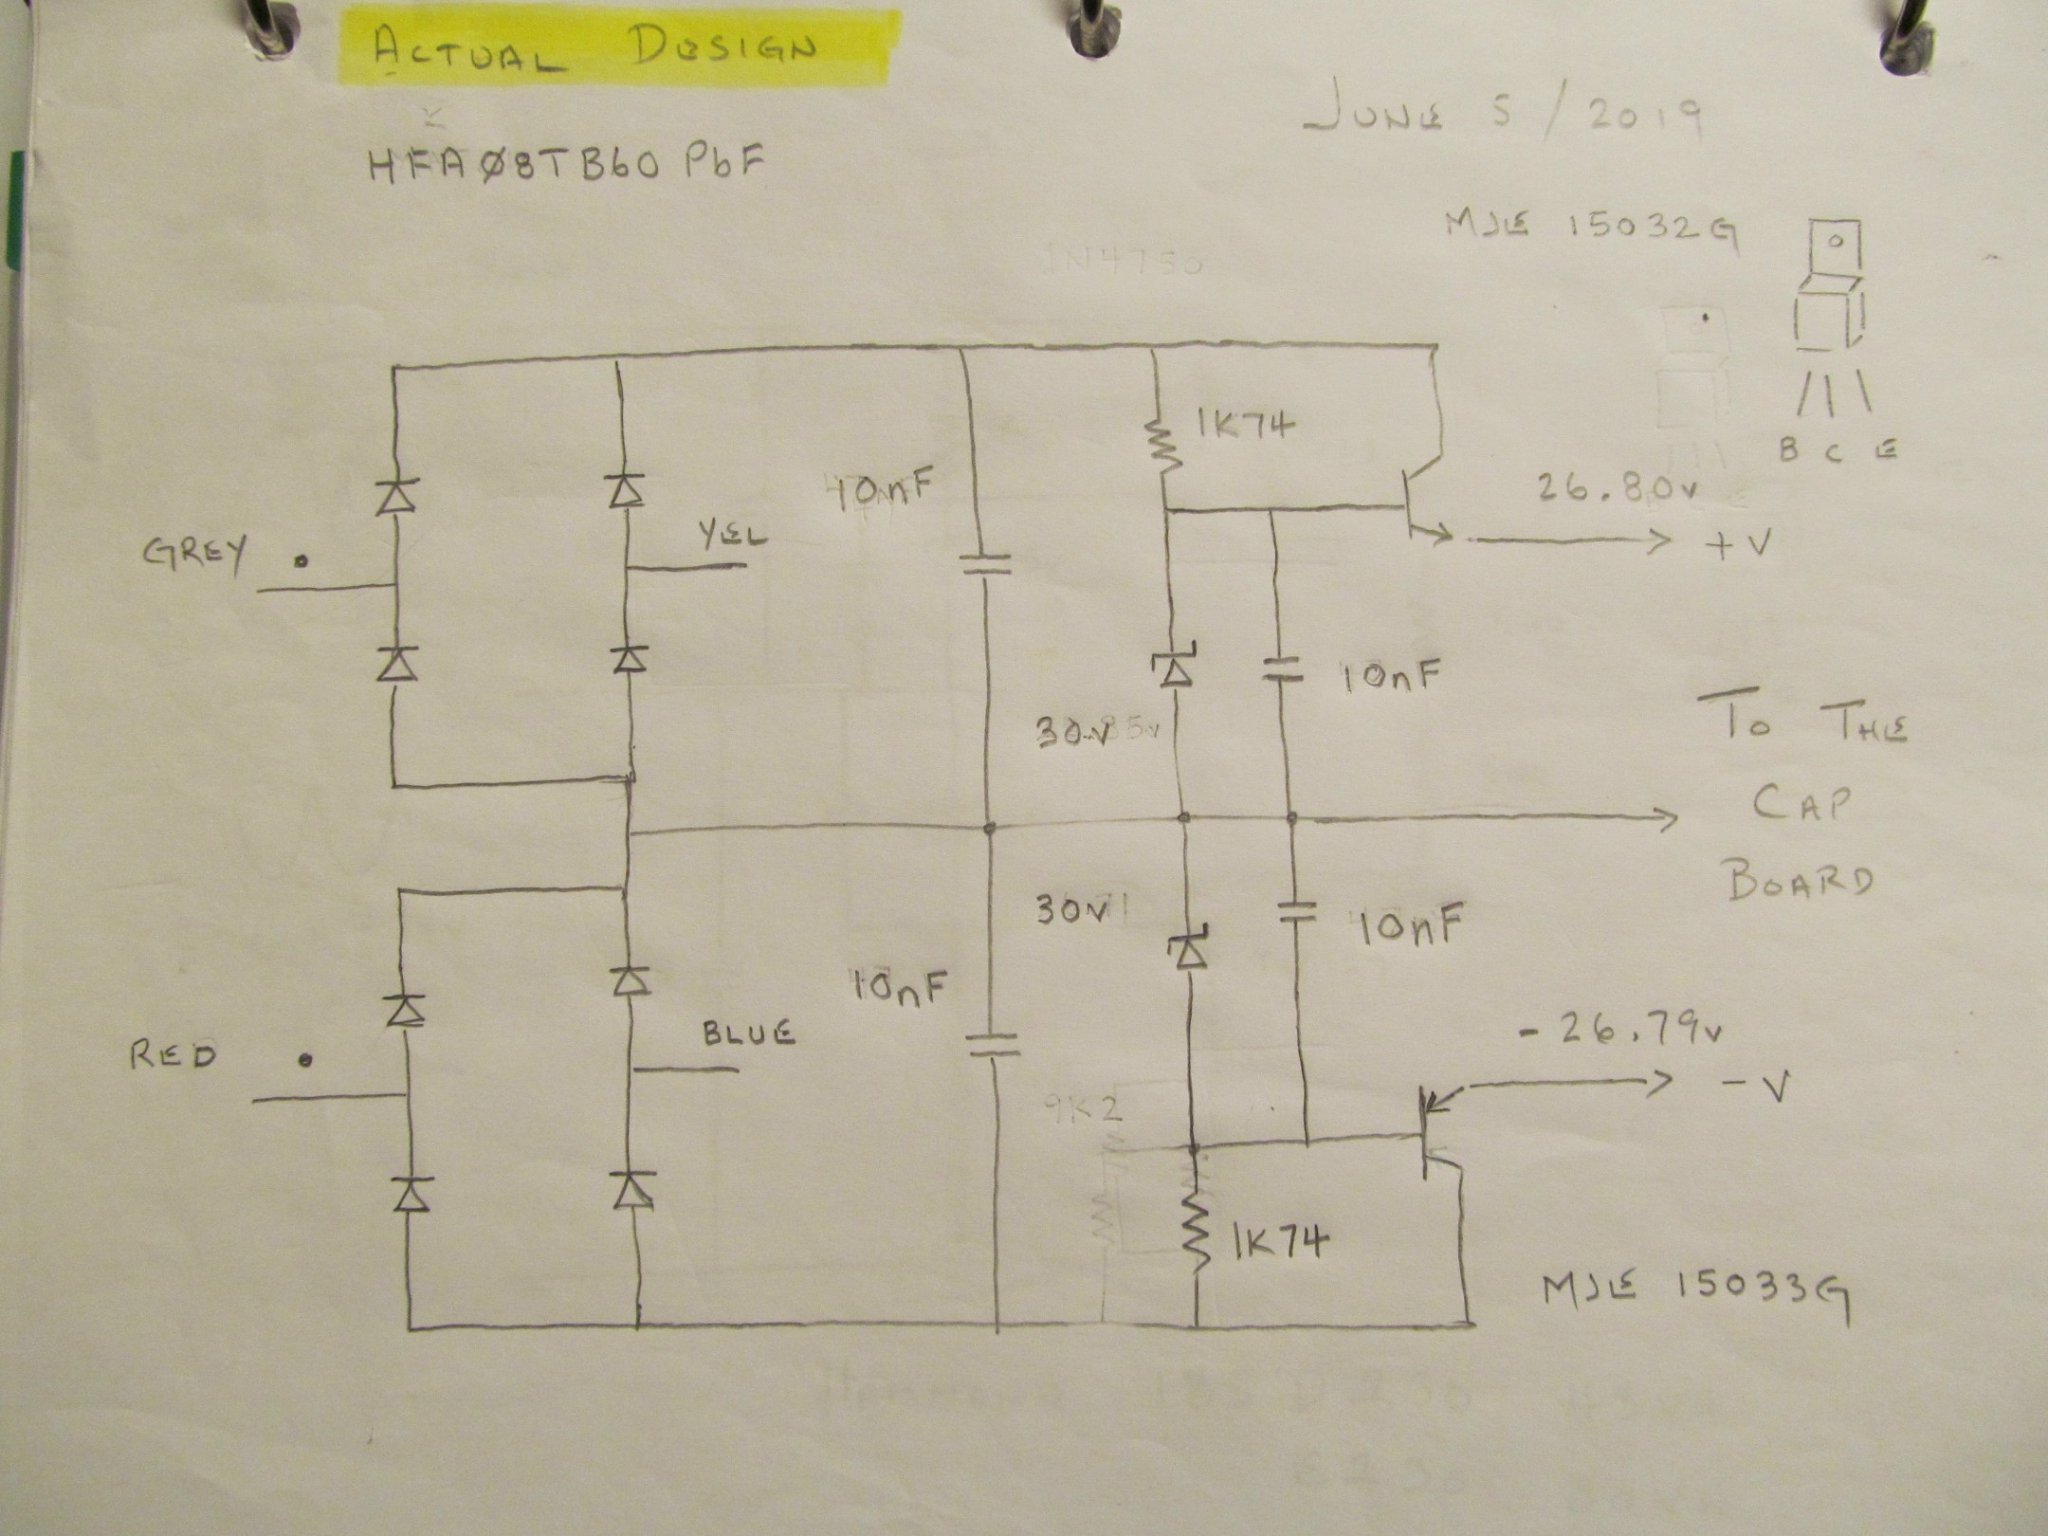 ACTUAL DESIGN
JUNE 5 / 2019
HFAØ8TB60 PbF
MJE 15032G
1N4750
1K74
B C E
10nF
26.80v
YEL
GREY
+V
10nF
30v
TO THE
CAP
BOARD
30v
10nF
10nF
BLUE
-26.79v
RED
-V
9K2
1K74
MJE 15033G